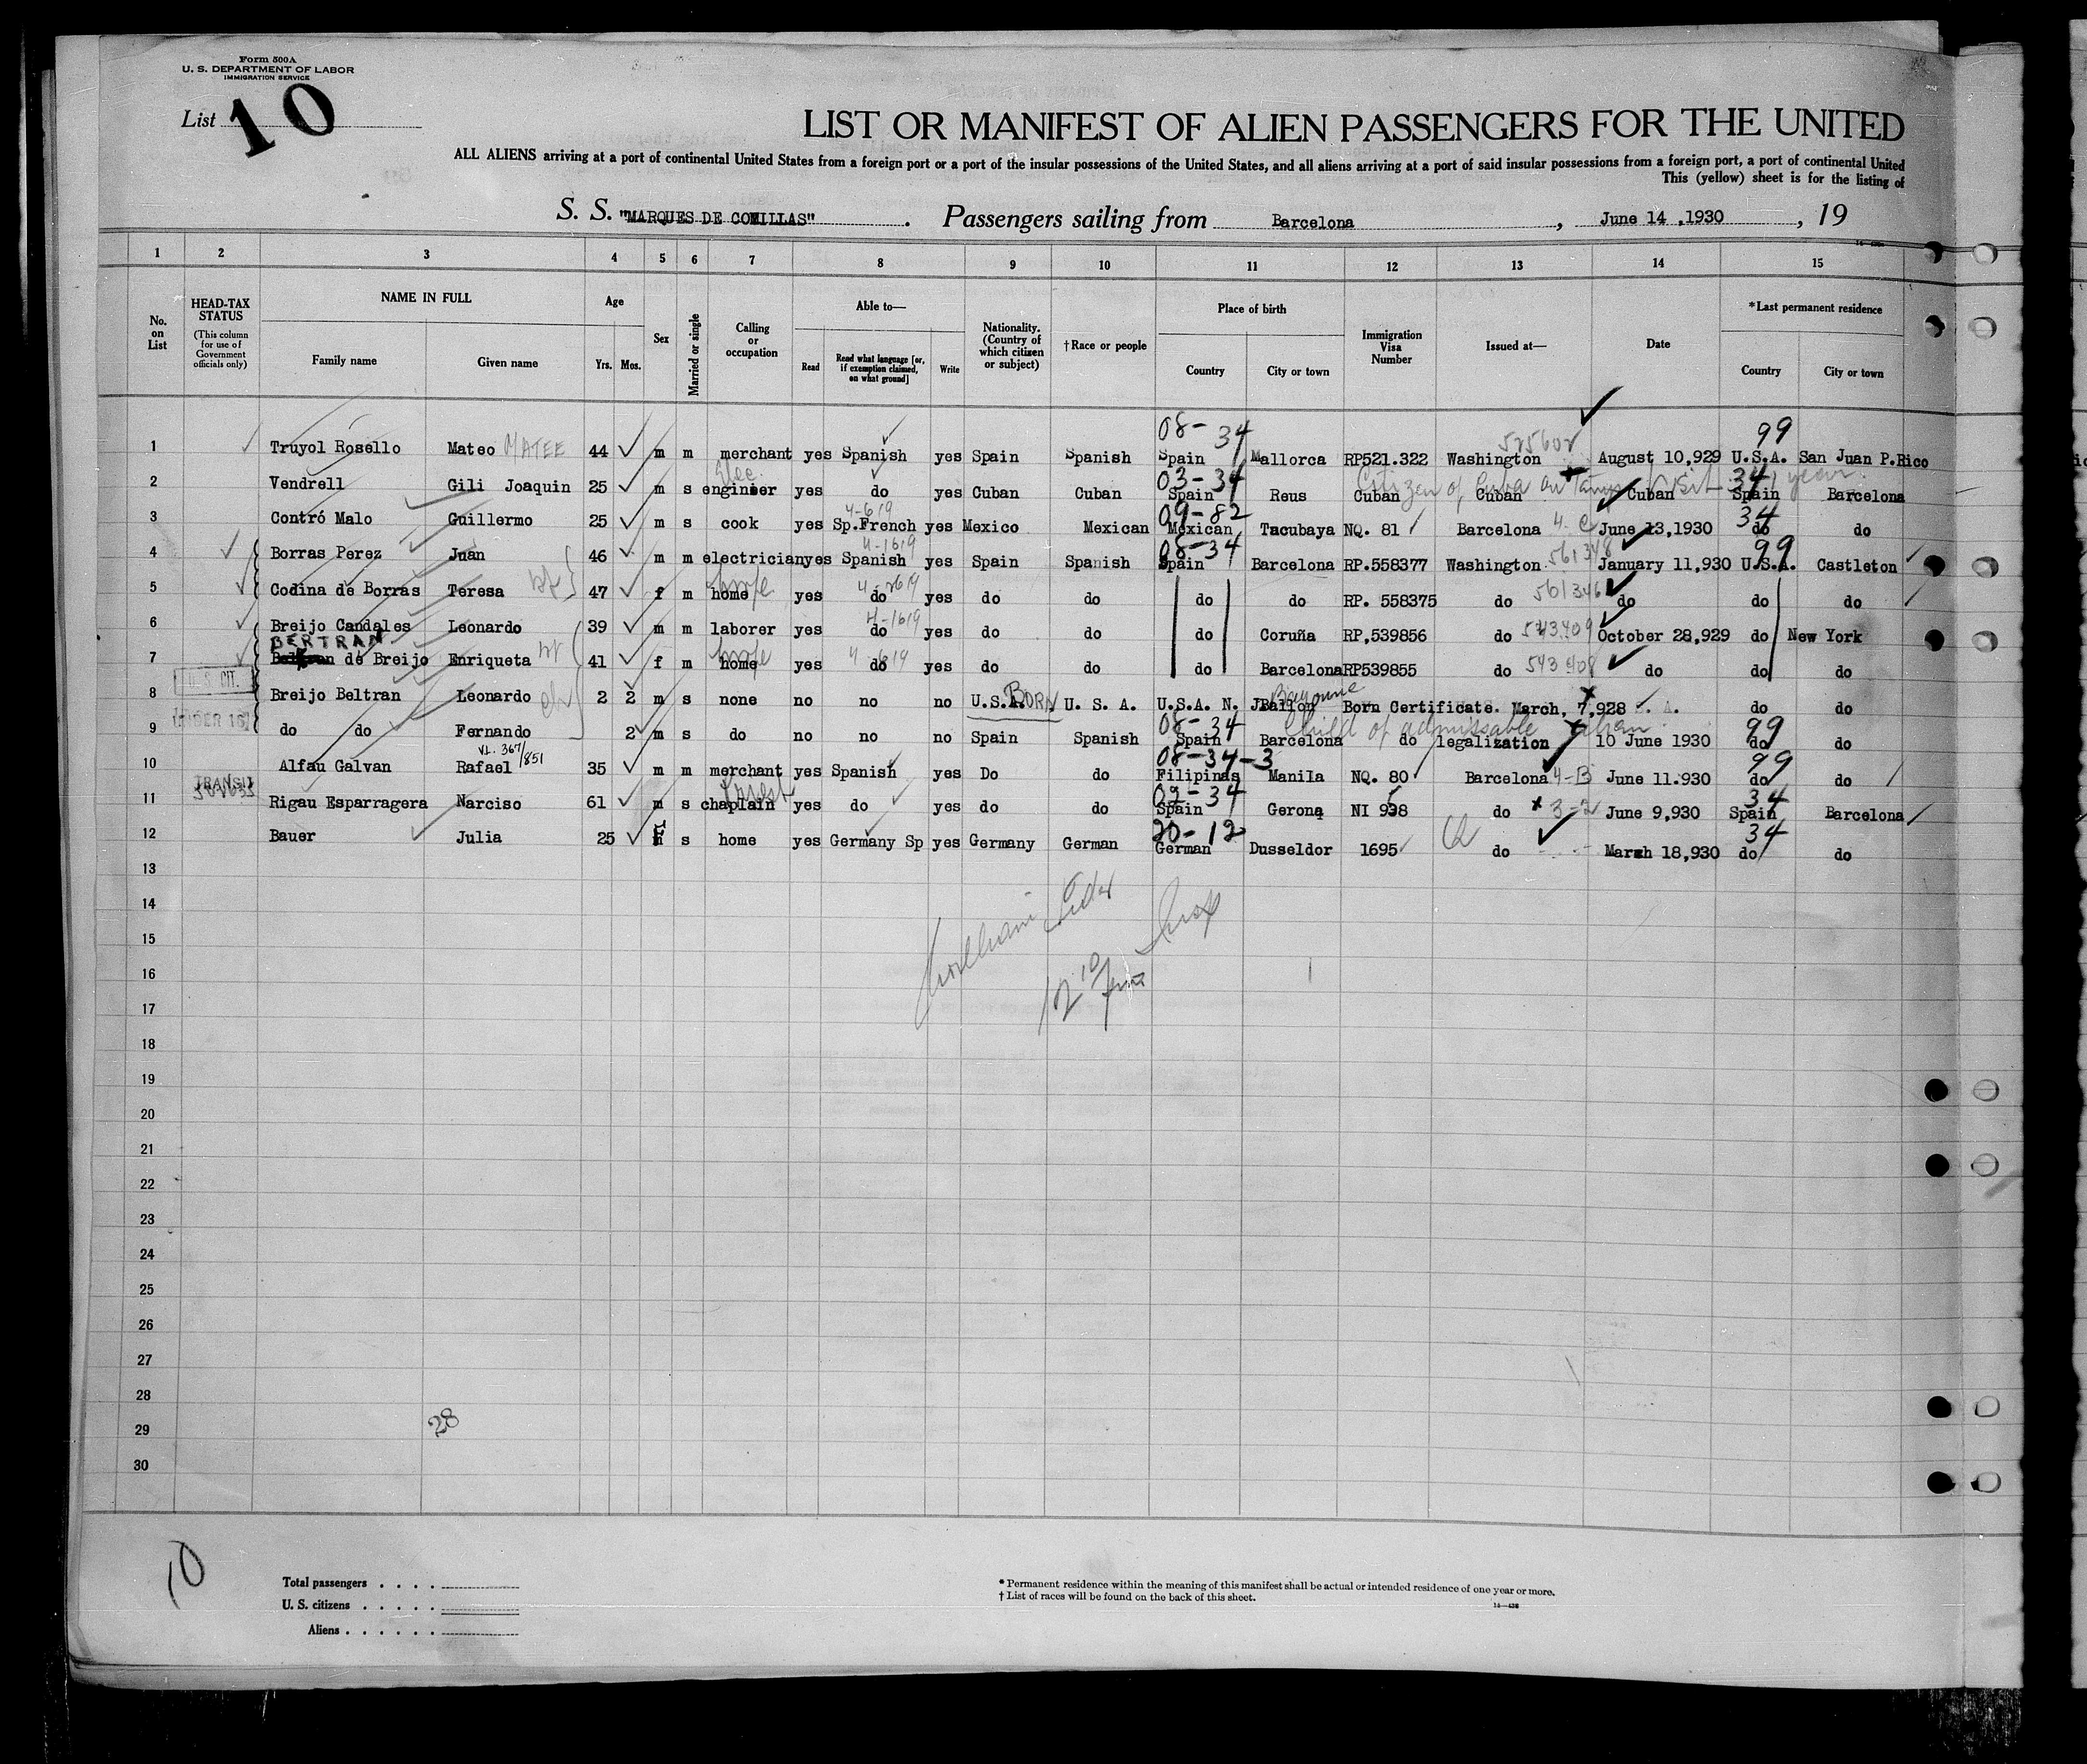 Form 500A
U. S. DEPARTMENT OF LABOR
IMMIGRATION SERVICE
List 10
LIST OR MANIFEST OF ALIEN PASSENGERS FOR THE UNITED
ALL ALIENS arriving at a port of continental United States from a foreign port or a port of the insular possessions of the United States, and all aliens arriving at a port of said insular possessions from a foreign port, a port of continental United
This (yellow) sheet is for the listing of
S. S. "MARQUES DE COMILLAS". Passengers sailing from Barcelona, June 14 ,1930, 19
1 2 3 4 5 6 7 8 9 10 11 12 13 14 15
No. on List
HEAD-TAX STATUS (This column for use of Government officials only)
NAME IN FULL Family name Given name
Age Yrs. Mos.
Sex
Married or single
Calling or occupation
Able to— Read Read what language [or, if exemption claimed, on what ground] Write
Nationality. (Country of which citizen or subject)
†Race or people
Place of birth Country City or town
Immigration Visa Number
Issued at—
Date
*Last permanent residence Country City or town
08- 34 525602 99
1 Truyol Rosello Mateo MATEE 44 m m merchant yes Spanish yes Spain Spanish Spain Mallorca RP521.322 Washington August 10,929 U.S.A. San Juan P.Rico
Elec. 03-34 Citizen of Cuba on visit 34 1 year
2 Vendrell Gili Joaquin 25 m s enginier yes do yes Cuban Cuban Spain Reus Cuban Cuban Cuban Spain Barcelona
4-619 09-82 34
3 Contró Malo Guillermo 25 m s cook yes Sp.French yes Mexico Mexican Mexican Tacubaya NQ. 81 Barcelona June 13,1930 do do
4-1619 08-34 561348 99
4 Borras Perez Juan 46 m m electrician yes Spanish yes Spain Spanish Spain Barcelona RP.558377 Washington January 11,930 U.S.A. Castleton
5 Codina de Borras Teresa wf 47 f m home yes do yes do do do do RP. 558375 do 561346 do do do
4-1619
6 Breijo Candales Leonardo 39 m m laborer yes do yes do do do Coruña RP,539856 do 543409 October 28,929 do New York
BERTRAN
7 de Breijo Enriqueta wf 41 f m home yes do yes do do do Barcelona RP539855 do 543408 do do do
U. S. CIT.
8 Breijo Beltran Leonardo ch 2 2 m s none no no no U.S.A. BORN U. S. A. U.S.A. N. J Bayonne Born Certificate. March, 7,928 do do
08-34 Child of admissable alien 99
9 do do Fernando 2 m s do no no no Spain Spanish Spain Barcelona do legalization 10 June 1930 do do
VL. 367/851 08-34-3 99
10 Alfau Galvan Rafael 35 m m merchant yes Spanish yes Do do Filipinas Manila NQ. 80 Barcelona 4-B June 11.930 do do
TRANSIT Priest 09-34 34
11 Rigau Esparragera Narciso 61 m s chaplain yes do yes do do Spain Gerona NI 938 do 3-2 June 9,930 Spain Barcelona
20-12 34
12 Bauer Julia 25 f s home yes Germany Sp yes Germany German German Dusseldor 1695 do March 18,930 do do
13
14
15
16
17
18
19
20
21
22
23
24
25
26
27
28
29
30
28
10
Total passengers . . . .
U. S. citizens . . . . .
Aliens . . . . . .
* Permanent residence within the meaning of this manifest shall be actual or intended residence of one year or more.
† List of races will be found on the back of this sheet.